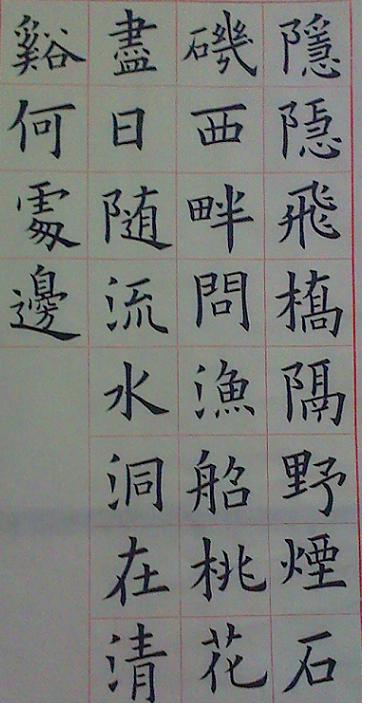 隱隐飛橋隔野煙石
磯西畔問漁船桃花
盡日随流水洞在清
谿何處邊